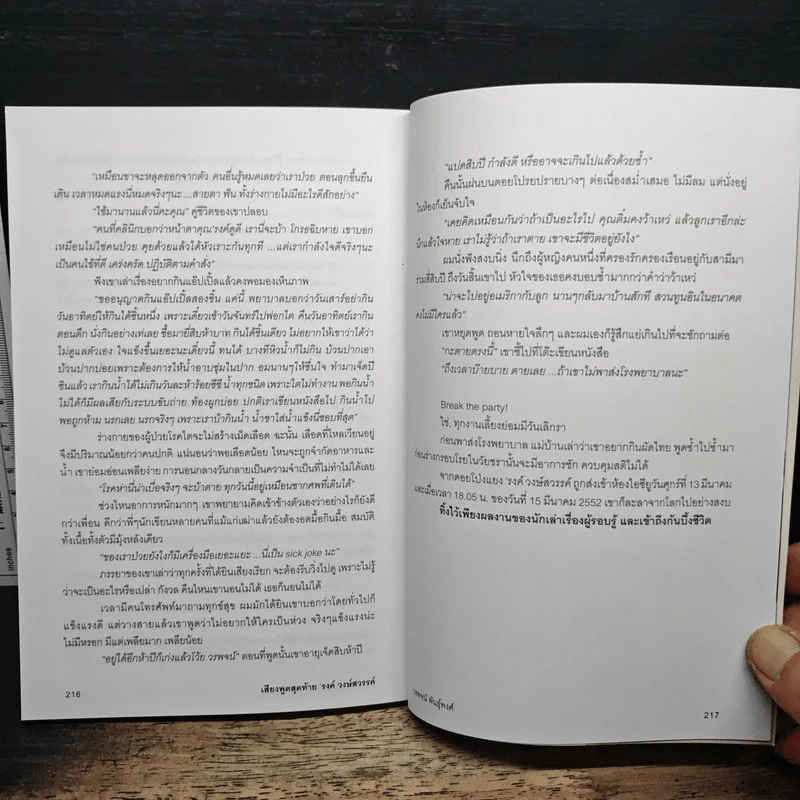 "เหมือนขาจะหลุดออกจากตัว คนอื่นรู้หมดเลยว่าเราป่วย ตอนลุกขึ้นยืน
เดิน เวลาหมดแรงนี่หมดจริงๆนะ ...สายตา ฟัน ทั้งร่างกายไม่มีอะไรดีสักอย่าง"
"ใช้มานานแล้วนี่คะคุณ" คู่ชีวิตของเขาปลอบ
"คนที่คลินิกบอกว่าหน้าตาคุณ'รงค์ดูดี เรานี่จะบ้า โกรธฉิบหาย เขาบอก
เหมือนไม่ใช่คนป่วย คุยด้วยแล้วได้หัวเราะกันทุกที ...แต่เรากำลังใจดีจริงๆนะ
เป็นคนไข้ที่ดี เคร่งครัด ปฏิบัติตามคำสั่ง"
ฟังเขาเล่าเรื่องอยากกินแอ๊ปเปิ้ลแล้วคงพอมองเห็นภาพ
"ขออนุญาตกินแอ๊ปเปิ้ลสองชิ้น แค่นี้ พยาบาลบอกว่าวันเสาร์อย่ากิน
วันอาทิตย์ให้กินได้ชิ้นหนึ่ง เพราะเดี๋ยวเช้าวันจันทร์ไปฟอกไต คืนวันอาทิตย์เรากิน
ตอนดึก นั่งกินอย่างเท่เลย ซื้อมายี่สิบห้าบาท กินได้ชิ้นเดียว ไม่อยากให้เขาว่าได้ว่า
ไม่ดูแลตัวเอง ใจแข็งขึ้นเยอะนะเดี๋ยวนี้ ทนได้ บางทีหิวน้ำก็ไม่กิน บ้วนปากเอา
บ้วนปากบ่อยเพราะต้องการให้น้ำอาบชุ่มในปาก อมนานๆให้ชื่นใจ ทำมาเจ็ดปี
ชินแล้ว เรากินน้ำได้ไม่เกินวันละห้าร้อยซีซี น้ำทุกชนิด เพราะไตไม่ทำงาน พอกินน้ำ
ไม่ได้ก็มีผลเสียกับระบบขับถ่าย ท้องผูกบ่อย ปกติเราเขียนหนังสือไป กินน้ำไป
พอถูกห้าม นรกเลย นรกจริงๆ เพราะเราบ้ากินน้ำ น้ำชาใส่น้ำแข็งนี่ชอบที่สุด"
ร่างกายของผู้ป่วยโรคไตจะไม่สร้างเม็ดเลือด ฉะนั้น เลือดที่ไหลเวียนอยู่
จึงมีปริมาณน้อยกว่าคนปกติ แน่นอนว่าพอเลือดน้อย ไหนจะถูกจำกัดอาหารและ
น้ำ เขาย่อมอ่อนเพลียง่าย การนอนกลางวันกลายเป็นความจำเป็นที่ทำไม่ได้เลย
"โรคห่านี่น่าเบื่อจริงๆ จะบ้าตาย ทุกวันนี้อยู่เหมือนซากศพที่เดินได้"
ช่วงไหนอาการหนักมากๆ เขาพยายามคิดเข้าข้างตัวเองว่าอย่างไรก็ยังดี
กว่าเพื่อน ดีกว่าพี่ๆนักเขียนหลายคนที่แม้แก่เฒ่าแล้วยังต้องอดมื้อกินมื้อ สมบัติ
ทั้งเนื้อทั้งตัวมีมุ้งหลังเดียว
"ของเราป่วยยังไงก็มีเครื่องมือเยอะแยะ ...นี่เป็น sick joke นะ"
ภรรยาของเขาเล่าว่าทุกครั้งที่ได้ยินเสียงเรียก จะต้องรีบวิ่งไปดู เพราะไม่รู้
ว่าจะเป็นอะไรหรือเปล่า กังวล คืนไหนเขานอนไม่ได้ เธอก็นอนไม่ได้
เวลามีคนโทรศัพท์มาถามทุกข์สุข ผมมักได้ยินเขาบอกว่าโดยทั่วไปก็
แข็งแรงดี แต่วางสายแล้วเขาพูดว่าไม่อยากให้ใครเป็นห่วง จริงๆแข็งแรงน่ะ
ไม่มีหรอก มีแต่เพลียมาก เพลียน้อย
"อยู่ได้อีกห้าปีก็เก่งแล้วโว้ย วรพจน์" ตอนที่พูดนั้นเขาอายุเจ็ดสิบห้าปี
216
เสียงพูดสุดท้าย 'รงค์ วงษ์สวรรค์
"แปดสิบปี กำลังดี หรืออาจจะเกินไปแล้วด้วยซ้ำ"
คืนนั้นฝนบนดอยโปรยปรายบางๆ ต่อเนื่องสม่ำเสมอ ไม่มีลม แต่นั่งอยู่
ในห้องก็เย็นจับใจ
"เคยคิดเหมือนกันว่าถ้าเป็นอะไรไป คุณติ๋มคงว้าเหว่ แล้วลูกเราอีกล่ะ
นึกแล้วใจหาย เราไม่รู้ว่าถ้าเราตาย เขาจะมีชีวิตอยู่ยังไง"
ผมนั่งฟังสงบนิ่ง นึกถึงผู้หญิงคนหนึ่งที่ครองรักครองเรือนอยู่กับสามีมา
ร่วมสี่สิบปี ถึงวันสิ้นเขาไป หัวใจของเธอคงบอบช้ำมากกว่าคำว่าว้าเหว่
"น่าจะไปอยู่อเมริกากับลูก นานๆกลับมาบ้านสักที สวนทูนอินในอนาคต
คงไม่มีใครแล้ว"
เขาหยุดพูด ถอนหายใจลึกๆ และผมเองก็รู้สึกแย่เกินไปที่จะซักถามต่อ
"กะตายตรงนี้" เขาชี้ไปที่โต๊ะเขียนหนังสือ
"ถึงเวลาบ๊ายบาย ตายเลย ...ถ้าเขาไม่พาส่งโรงพยาบาลนะ"
Break the party!
ใช่, ทุกงานเลี้ยงย่อมมีวันเลิกรา
ก่อนพาส่งโรงพยาบาล แม่บ้านเล่าว่าเขาอยากกินผัดไทย พูดซ้ำไปซ้ำมา
ก่อนร่างกรอบโรยในวัยชรานั้นจะมีอาการชัก ควบคุมสติไม่ได้
จากดอยโป่งแยง 'รงค์ วงษ์สวรรค์ ถูกส่งเข้าห้องไอซียูวันศุกร์ที่ 13 มีนาคม
และเมื่อเวลา 18.05 น. ของวันที่ 15 มีนาคม 2552 เขาก็ละลาจากโลกไปอย่างสงบ
ทิ้งไว้เพียงผลงานของนักเล่าเรื่องผู้รอบรู้ และเข้าถึงก้นบึ้งชีวิต
วรพจน์ พันธุ์พงศ์
217
inches